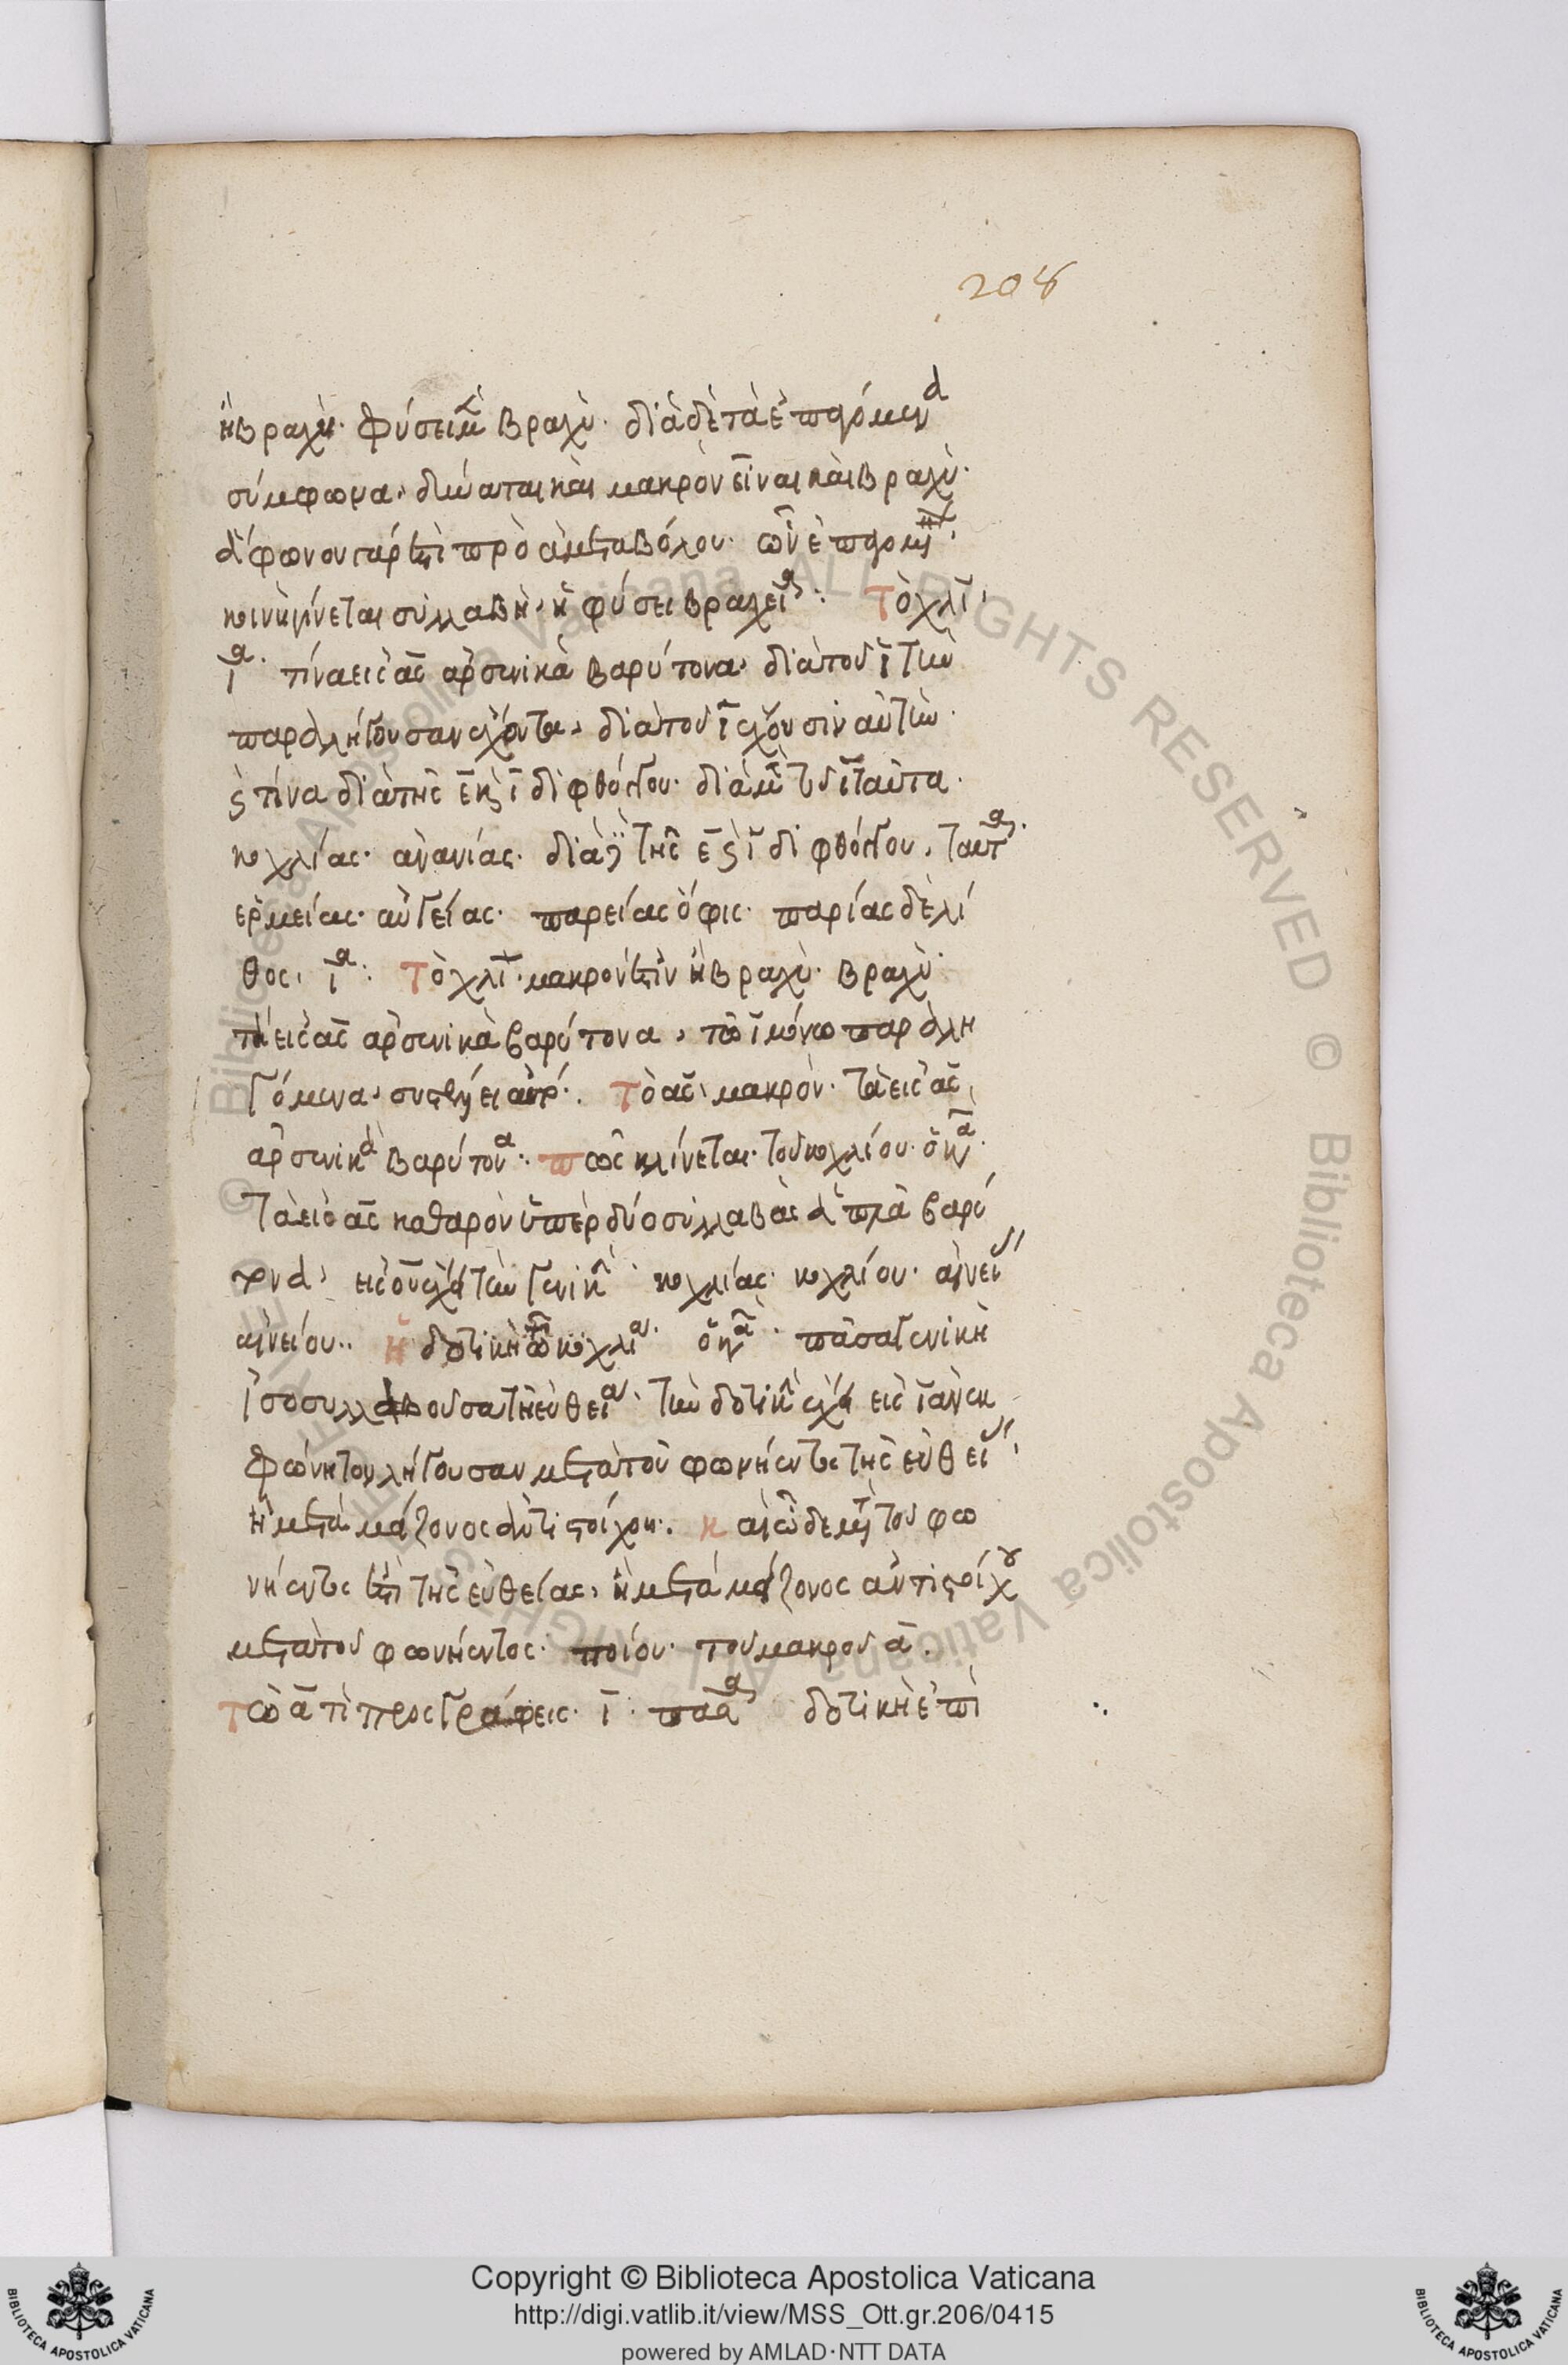 208
ἢ βραχύ· φύσει μὲν βραχύ· διὰ δὲ τὰ ἑπόμενα
σύμφωνα, δύναται καὶ μακρὸν εἶναι καὶ βραχύ·
ἄφωνον γάρ ἐστι πρὸ ἀμεταβόλου· ὧν ἑπομένων
κοινὴ γίνεται συλλαβὴ, ἡ φύσει βραχεῖα: Τὸ χλι
ϊα· τίνα εἰς ας ἀρσενικὰ βαρύτονα, διὰ τοῦ ι τὴν
παραλήγουσαν ἔχοντα, διὰ τοῦ ι ἔχουσιν αὐτὴν·
ϛ τίνα διὰ τῆς ε κς ι διφθόγγου· διὰ μὲν τοῦ ι ταῦτα·
κοχλίας· ἀνανίας· διὰ δὲ τῆς ε ϛ ι διφθόγγου, ταῦτα·
ἑρμείας· αὐγείας· παρείας ὄφις· παρίας δὲ λί
θος, ϊα: Τὸ χλι· μακρόν ἐστιν ἢ βραχύ· βραχύ·
τὰ εἰς ας ἀρσενικὰ βαρύτονα, τῶ ι μόνω παραλη
γόμενα, συστέλλει αὐτό·. Τὸ ας, μακρόν· τὰ εἰς ας,
ἀρσενικὰ βαρύτονα·. πῶς κλίνεται· τοῦ κοχλίου· ὁ κανών·
Τὰ εἰς ας καθαρὸν ὑπὲρ δύο συλλαβὰς ἁπλᾶ βαρύ
τονα, εἰς ου ἔχει τὴν γενικήν· κοχλίας· κοχλίου· αἰνείας
αἰνείου·. Ἡ δοτικὴ τῶ κοχλία· ὁ κανών· πᾶσα γενικὴ
ἰσοσυλλαβοῦσα τῆ εὐθεία, τὴν δοτικὴν ἔχει εἰς ι ἀνεκ
φώνητον λήγουσαν μετὰ τοῦ φωνήεντος τῆς εὐθείας,
ἢ μετὰ μείζονος ἀντιστοίχου·. καὶ ὧδε μετὰ τοῦ φω
νήεντος ἐστὶ τῆς εὐθείας, ἢ μετὰ μείζονος ἀντιστοίχου
μετὰ τοῦ φωνήεντος· ποίου· τοῦ μακροῦ α.
Τῶ α τὶ προσγράφεις· ι· πᾶσα δοτικὴ ἐπὶ
Copyright © Biblioteca Apostolica Vaticana
http://digi.vatlib.it/view/MSS_Ott.gr.206/0415
powered by AMLAD·NTT DATA